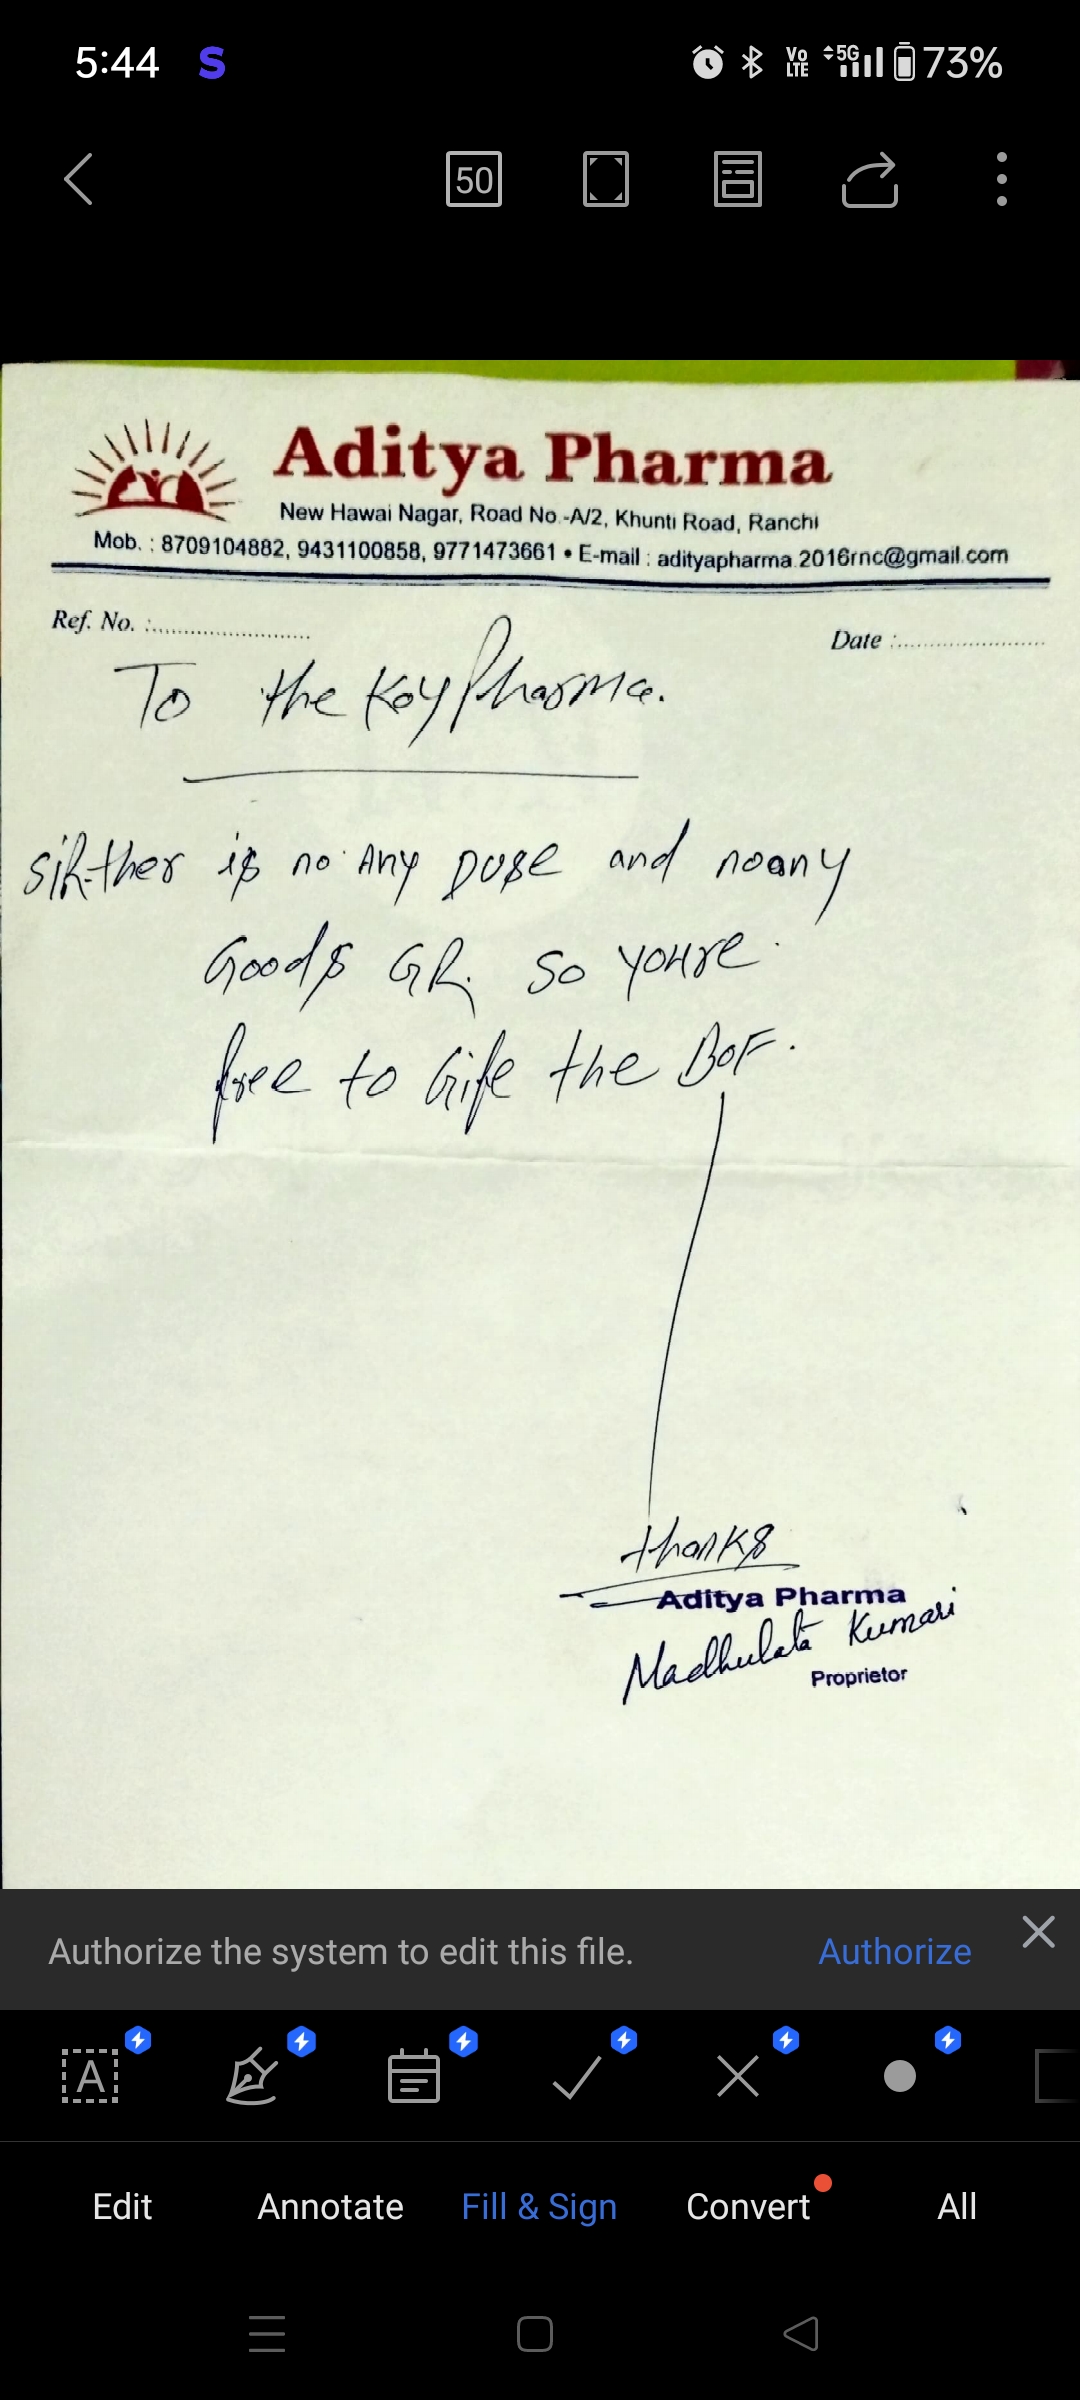 5:44 S Vo LTE 5G 73%
50
Aditya Pharma
New Hawai Nagar, Road No.-A/2, Khunti Road, Ranchi
Mob. : 8709104882, 9431100858, 9771473661 • E-mail : adityapharma.2016rnc@gmail.com
Ref. No. :..............................
Date :..............................
To the Key Pharma.
Sir ther is no Any Duse and noany
Goods GR. so youre
free to Gife the BOF.
thanks
Aditya Pharma
Madhulata Kumari
Proprietor
Authorize the system to edit this file. Authorize
A
Edit Annotate Fill & Sign Convert All